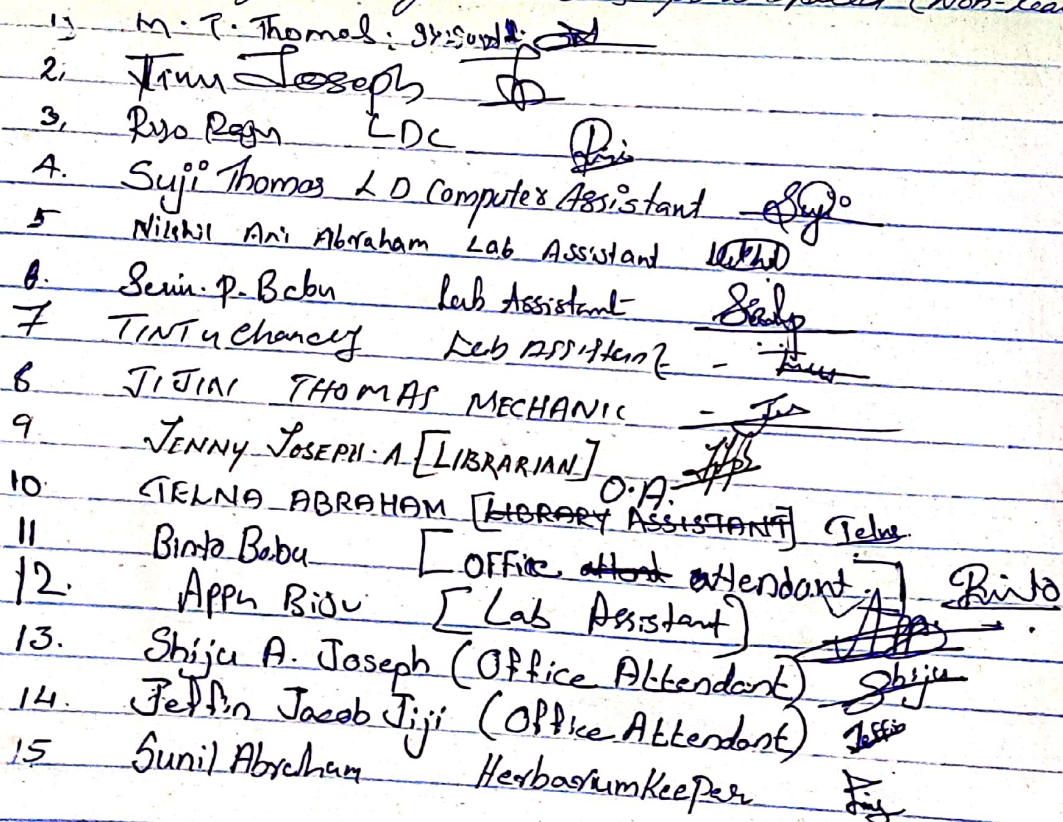 (Non-
1) M. T. Thomas.
2, Joseph
3, Ryo LDC
4. Suji Thomas LD Computer Assistant Suji
5 Nikhil Ani Abraham Lab Assistant Nikhil
6. P. Babu Lab Assistant
7 TINTU Lab Assistant -
8 JIJINI THOMAS MECHANIC -
9 JENNY JOSEPH. A [LIBRARIAN]
O.A.
10 TELNA ABRAHAM [LIBRARY ASSISTANT] Telna
11 Binto Babu [OFFICE attendant] Binto
12. Appu [Lab Assistant]
13. Shiju A. Joseph (Office Attendant) Shiju
14. Jeffin Jacob Jiji (Office Attendant) Jeffin
15 Sunil Abraham Herbarium Keeper